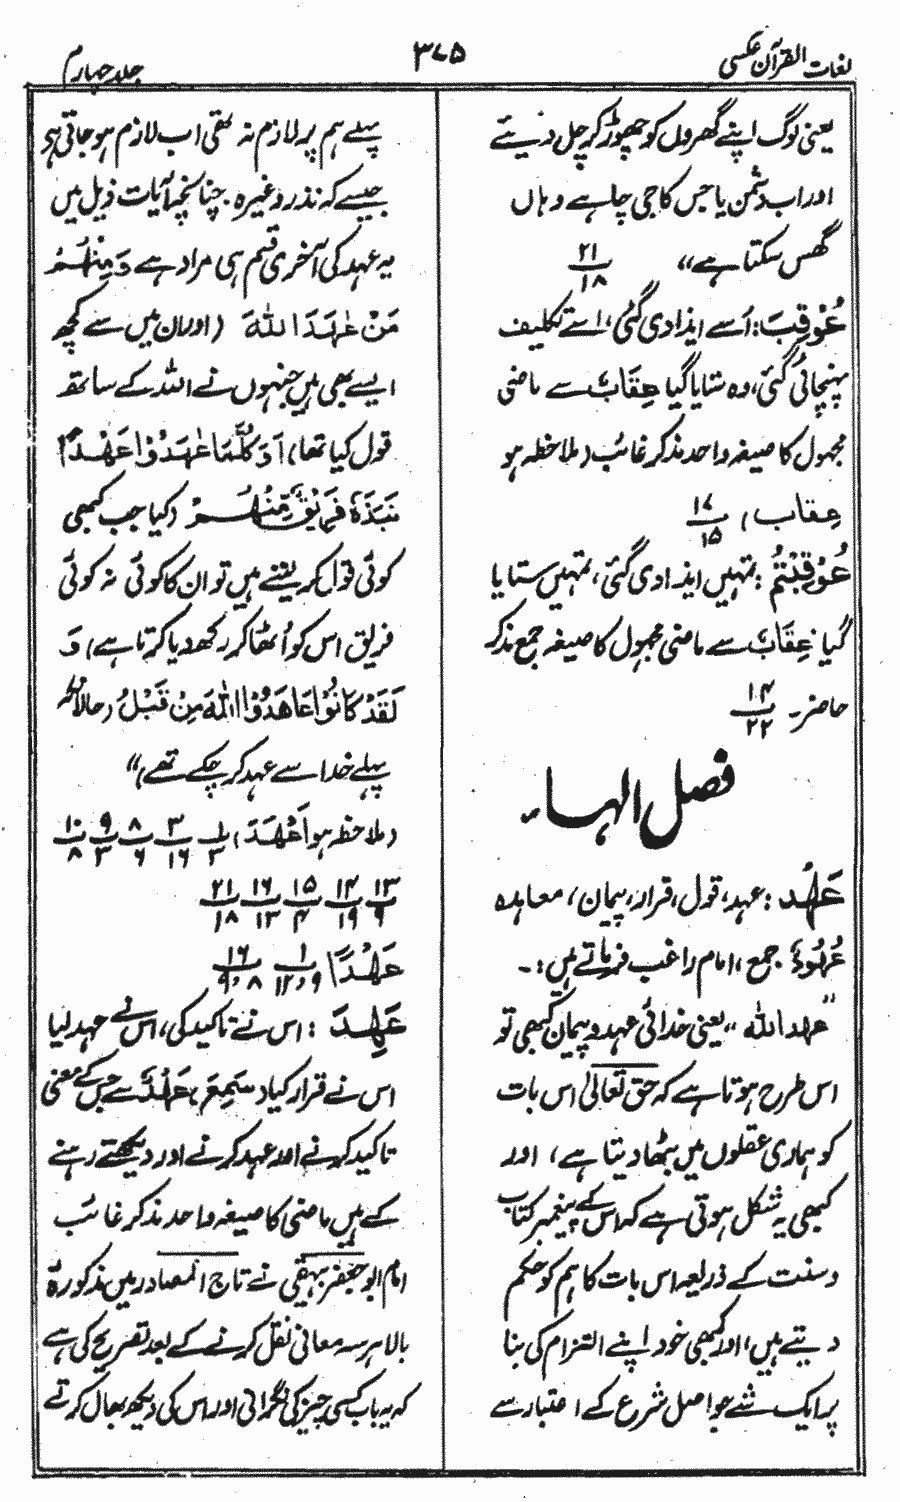 لغات القرآن عکسی
۳۷۵
جلد چہارم
یعنی لوگ اپنے گھروں کو چھوڑ کر چل دیئے
اور اب دشمن یا جس کا جی چاہے وہاں
گھس سکتا ہے“ ۲۱/۱۸
عُوْقِبَ: اُسے ایذا دی گئی، اسے تکلیف
پہنچائی گئی، وہ ستایا گیا عِقَابٌ سے ماضی
مجہول کا صیغہ واحد مذکر غائب (ملاحظہ ہو
عِقاب) ۱۷/۱۵
عُوْقِبْتُمْ: تمہیں ایذا دی گئی، تمہیں ستایا
گیا عِقَابٌ سے ماضی مجہول کا صیغہ جمع مذکر
حاضر۔ ۱۴/۲۲
فصل الہا۔
عَہْد: عہد، قول، قرار، پیمان، معاہدہ
عُہُودٌ جمع، امام راغب فرماتے ہیں:۔
”عہد اللہ“ یعنی خدائی عہد و پیمان کبھی تو
اس طرح ہوتا ہے کہ حق تعالیٰ اس بات
کو ہماری عقلوں میں بٹھا دیتا ہے، اور
کبھی یہ شکل ہوتی ہے کہ اس کے پیغمبر کتاب
و سنت کے ذریعہ اس بات کا ہم کو حکم
دیتے ہیں، اور کبھی خود اپنے التزام کی بنا
پر ایک شئے جو اصل شرع کے اعتبار سے
پہلے ہم پر لازم نہ تھی اب لازم ہو جاتی ہی
جیسے کہ نذر وغیرہ۔ چنانچہ آیات ذیل میں
یہ عہد کی آخری قسم ہی مراد ہے وَمِنْہُمْ
مَنْ عٰہَدَ اللّٰہَ (اور ان میں سے کچھ
ایسے بھی ہیں جنہوں نے اللہ کے ساتھ
قول کیا تھا) اَوَکُلَّمَا عٰہَدُوْا عَہْدًا
نَبَذَہٗ فَرِیْقٌ مِّنْہُمْ (کیا جب کبھی
کوئی قول کر لیتے ہیں تو ان کا کوئی نہ کوئی
فریق اس کو اُٹھا کر رکھ دیا کرتا ہے) وَ
لَقَدْ کَانُوْا عَاھَدُوا اللّٰہَ مِنْ قَبْلُ (حالانکہ
پہلے خدا سے عہد کر چکے تھے)“
(ملاحظہ ہو اَعْہَدَ) ۱/۳ ۳/۱۶ ۸/۶ ۹/۳ ۱۰/۸
۱۳/۹ ۱۴/۱۹ ۱۵/۴ ۱۶/۱۳ ۲۱/۱۸
عَہْدًا ۱/۱۲،۹ ۱۶/۹،۸
عَہِدَ: اس نے تاکید کی، اس نے عہد لیا
اس نے قرار کیا (سَمِعَ) عَہْدٌ سے جس کے معنی
تاکید کرنے اور عہد کرنے اور دیکھتے رہنے
کے ہیں ماضی کا صیغہ واحد مذکر غائب
امام ابوجعفر بیہقی نے تاج المصادر میں مذکورہ
بالا ہر سہ معانی نقل کرنے کے بعد تصریح کی ہے
کہ یہ باب کسی چیز کی نگرانی اور اس کی دیکھ بھال کرتے